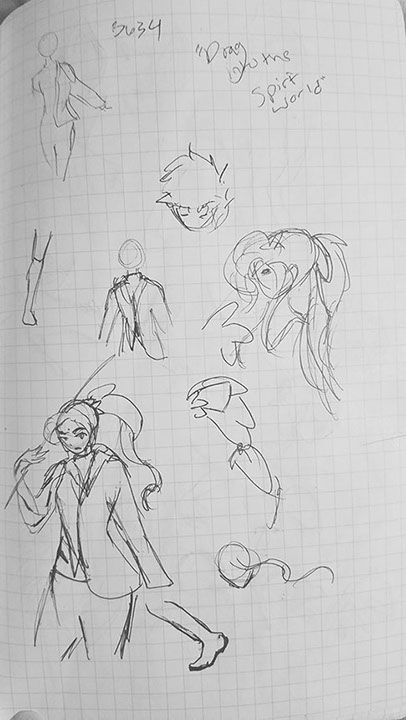 "Drag
into the
Spirit
World"